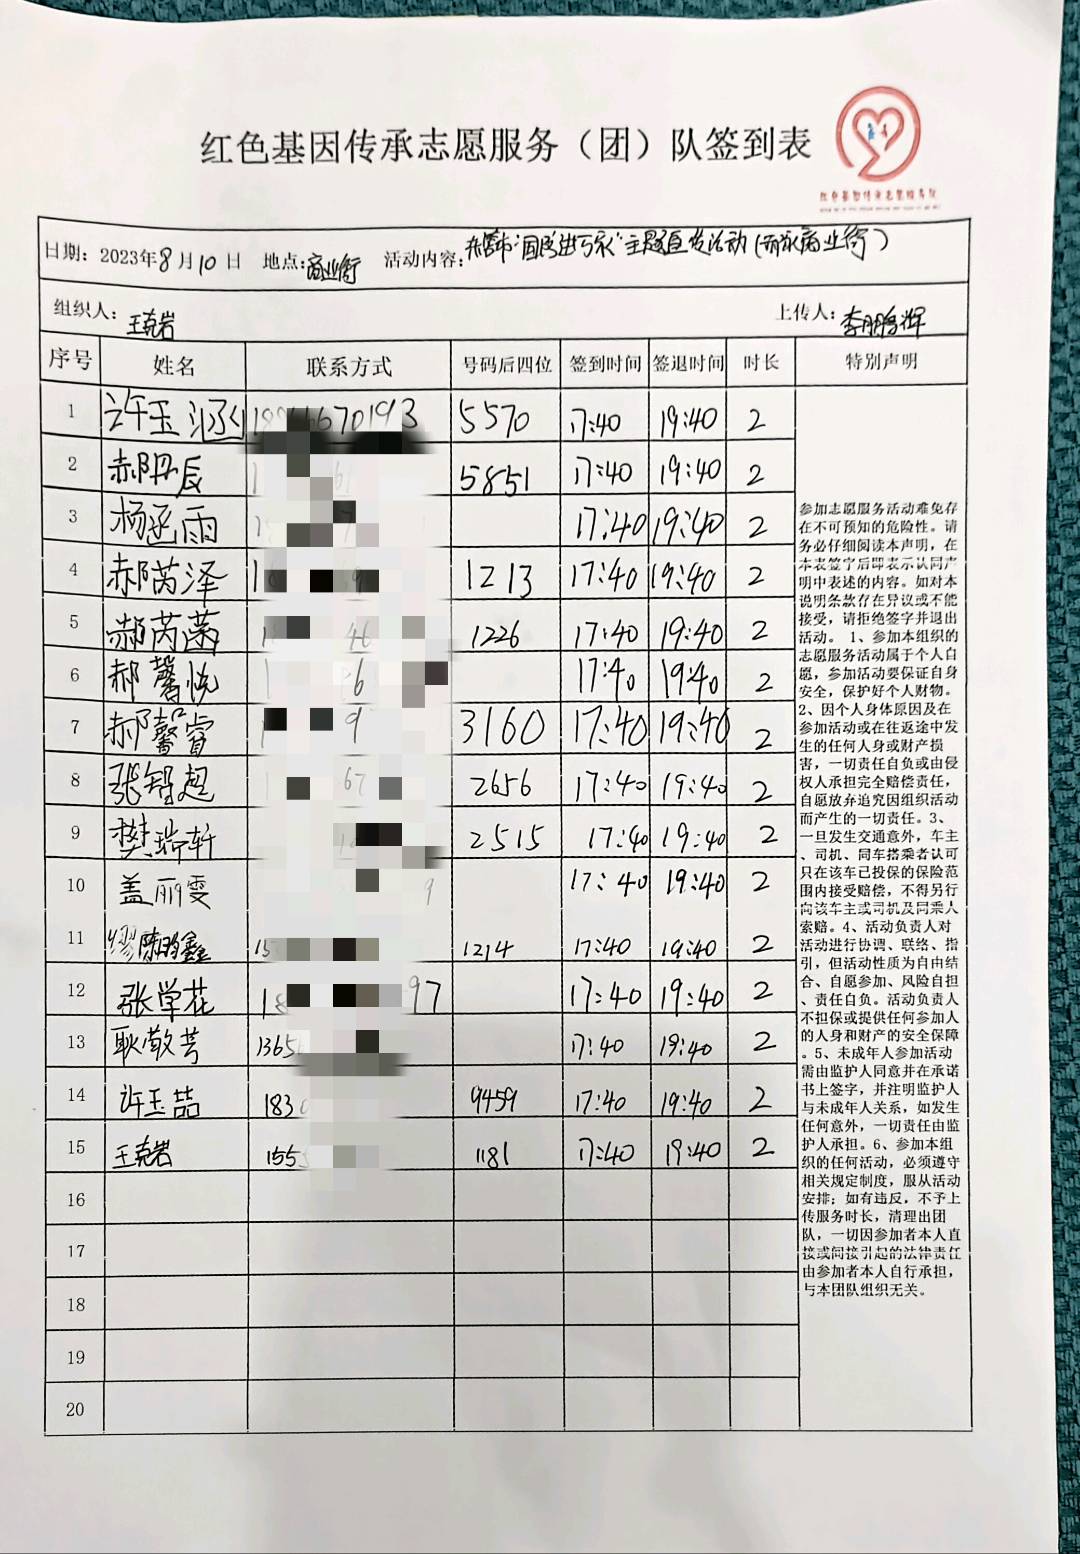 红色基因传承志愿服务（团）队签到表
红色基因传承志愿服务队
日期：2023年8月10日 地点：商业街 活动内容：主题宣发活动（商业街）
组织人：王克岩 上传人：李鹏辉
序号 姓名 联系方式 号码后四位 签到时间 签退时间 时长 特别声明
1 许玉涵 5570 17:40 19:40 2
2 郝丹辰 5851 17:40 19:40 2
3 杨函雨 17:40 19:40 2
4 郝芮泽 1213 17:40 19:40 2
5 郝芮菡 1226 17:40 19:40 2
6 郝馨悦 17:40 19:40 2
7 郝馨睿 3160 17:40 19:40 2
8 张智超 2656 17:40 19:40 2
9 樊瑞轩 2515 17:40 19:40 2
10 盖丽雯 17:40 19:40 2
11 1214 17:40 19:40 2
12 张学花 17:40 19:40 2
13 耿敬芳 17:40 19:40 2
14 许玉喆 9459 17:40 19:40 2
15 王克岩 1181 17:40 19:40 2
16
17
18
19
20
参加志愿服务活动难免存
在不可预知的危险性。请
务必仔细阅读本声明，在
本表签字后即表示认同声
明中表述的内容。如对本
说明条款存在异议或不能
接受，请拒绝签字并退出
活动。 1、参加本组织的
志愿服务活动属于个人自
愿，参加活动要保证自身
安全，保护好个人财物。
2、因个人身体原因及在
参加活动或在往返途中发
生的任何人身或财产损
害，一切责任自负或由侵
权人承担完全赔偿责任，
自愿放弃追究因组织活动
而产生的一切责任。3、
一旦发生交通意外，车主
、司机、同车搭乘者认可
只在该车已投保的保险范
围内接受赔偿，不得另行
向该车主或司机及同乘人
索赔。4、活动负责人对
活动进行协调、联络、指
引，但活动性质为自由结
合、自愿参加、风险自担
、责任自负。活动负责人
不担保或提供任何参加人
的人身和财产的安全保障
。5、未成年人参加活动
需由监护人同意并在承诺
书上签字，并注明监护人
与未成年人关系，如发生
任何意外，一切责任由监
护人承担。6、参加本组
织的任何活动，必须遵守
相关规定制度，服从活动
安排；如有违反，不予上
传服务时长，清理出团
队，一切因参加者本人直
接或间接引起的法律责任
由参加者本人自行承担，
与本团队组织无关。